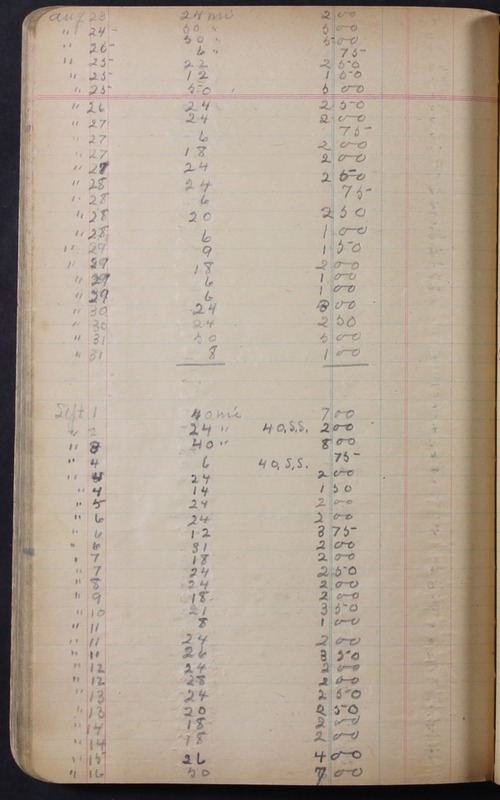 Aug 23 24 mi 2 00
" 24 50 " 5 00
" 25 50 " 5 00
" 25 6 " 75
" 25 22 2 50
" 25 12 1 50
" 25 50 5 00
" 26 24 2 50
" 27 24 2 00
" 27 6 75
" 27 18 2 00
" 27 24 2 00
" 28 24 2 50
" 28 6 75
" 28 20 2 50
" 28 6 1 00
" 29 9 1 50
" 29 18 2 00
" 29 6 1 00
" 29 6 1 00
" 30 24 3 00
" 30 24 2 50
" 31 50 5 00
" 31 8 1 00
Sept 1 40 mi 7 00
" 2 24 " 40,S.S. 2 00
" 3 40 " 8 00
" 4 6 40,S,S. 75
" 4 24 2 00
" 4 14 1 50
" 5 24 2 00
" 6 24 2 00
" 6 12 3 75
" 6 31 2 00
" 7 18 2 00
" 7 24 2 50
" 8 24 2 00
" 9 18 2 00
" 10 21 3 50
" 11 8 1 00
" 11 24 2 00
" 11 26 3 50
" 12 24 2 00
" 12 28 2 00
" 13 24 2 50
" 13 20 2 50
" 14 18 2 00
" 14 18 2 00
" 15 26 4 00
" 16 50 7 00